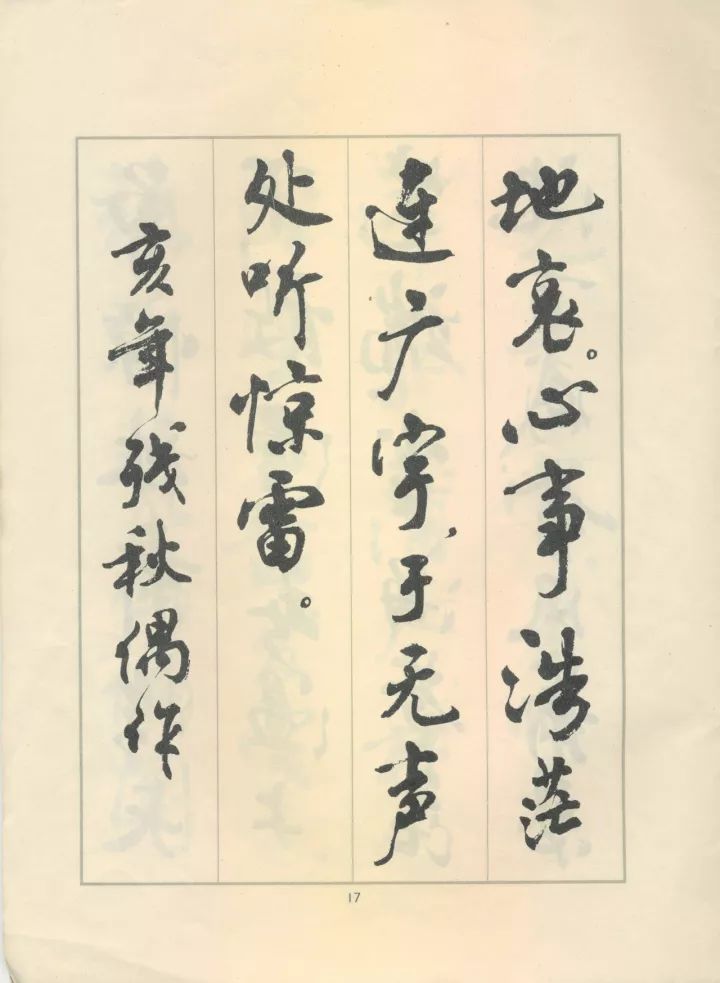 地哀。心事浩茫
连广宇、于无声
处听惊雷。
亥年残秋偶作
17